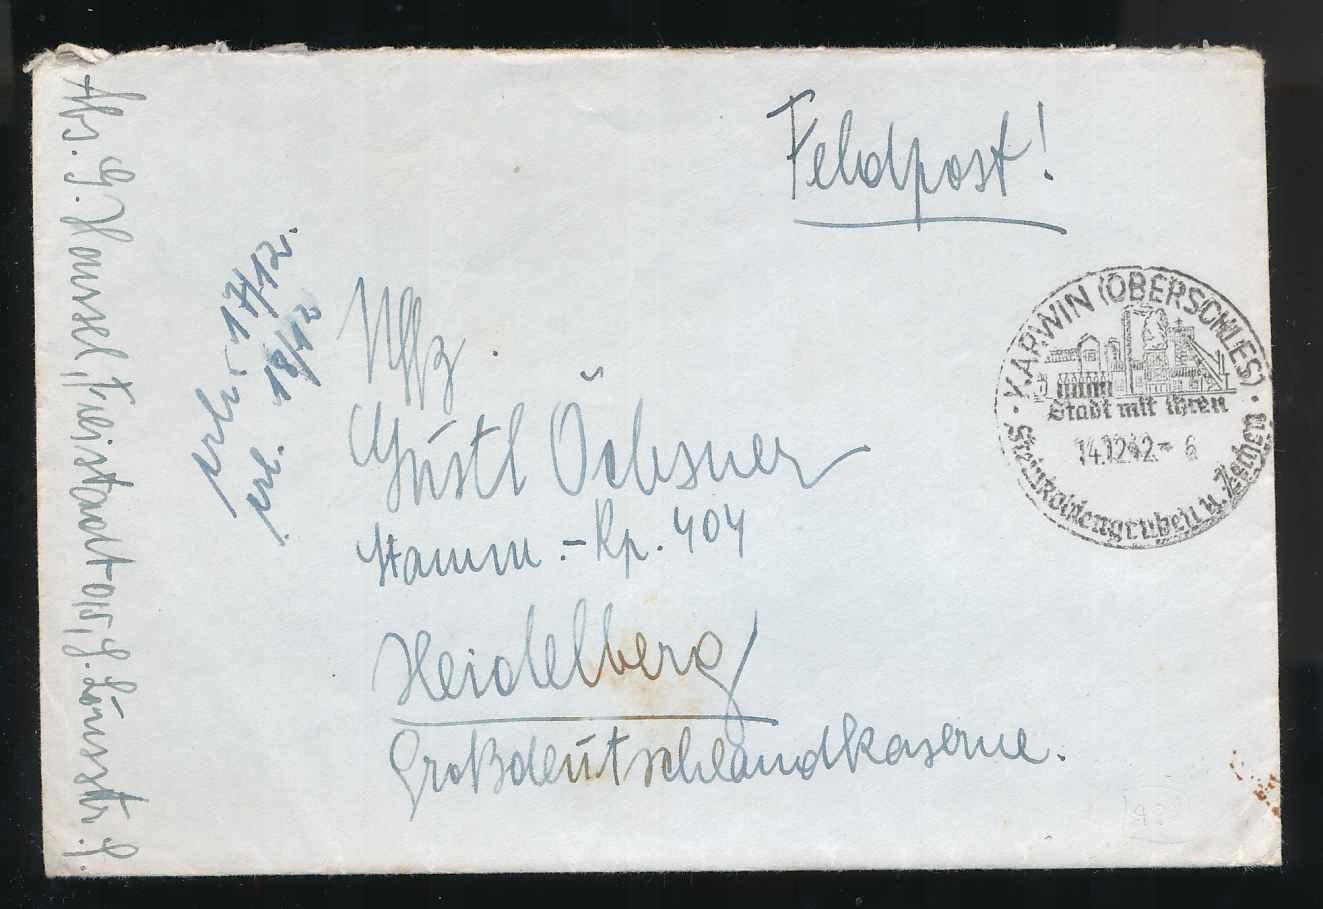 Feldpost!
KARWIN (OBERSCHLES)
Stadt mit ihren
14.12.42.- 6
Steinkohlengruben u. Zechen
erh. - 17/12.
erl. 18/12
Uffz.
Gustl Öchsner
Stamm.-Kp. 404
Heidelberg
Großdeutschlandkaserne.
Abs. G. Hansel, Freistadt O/S,